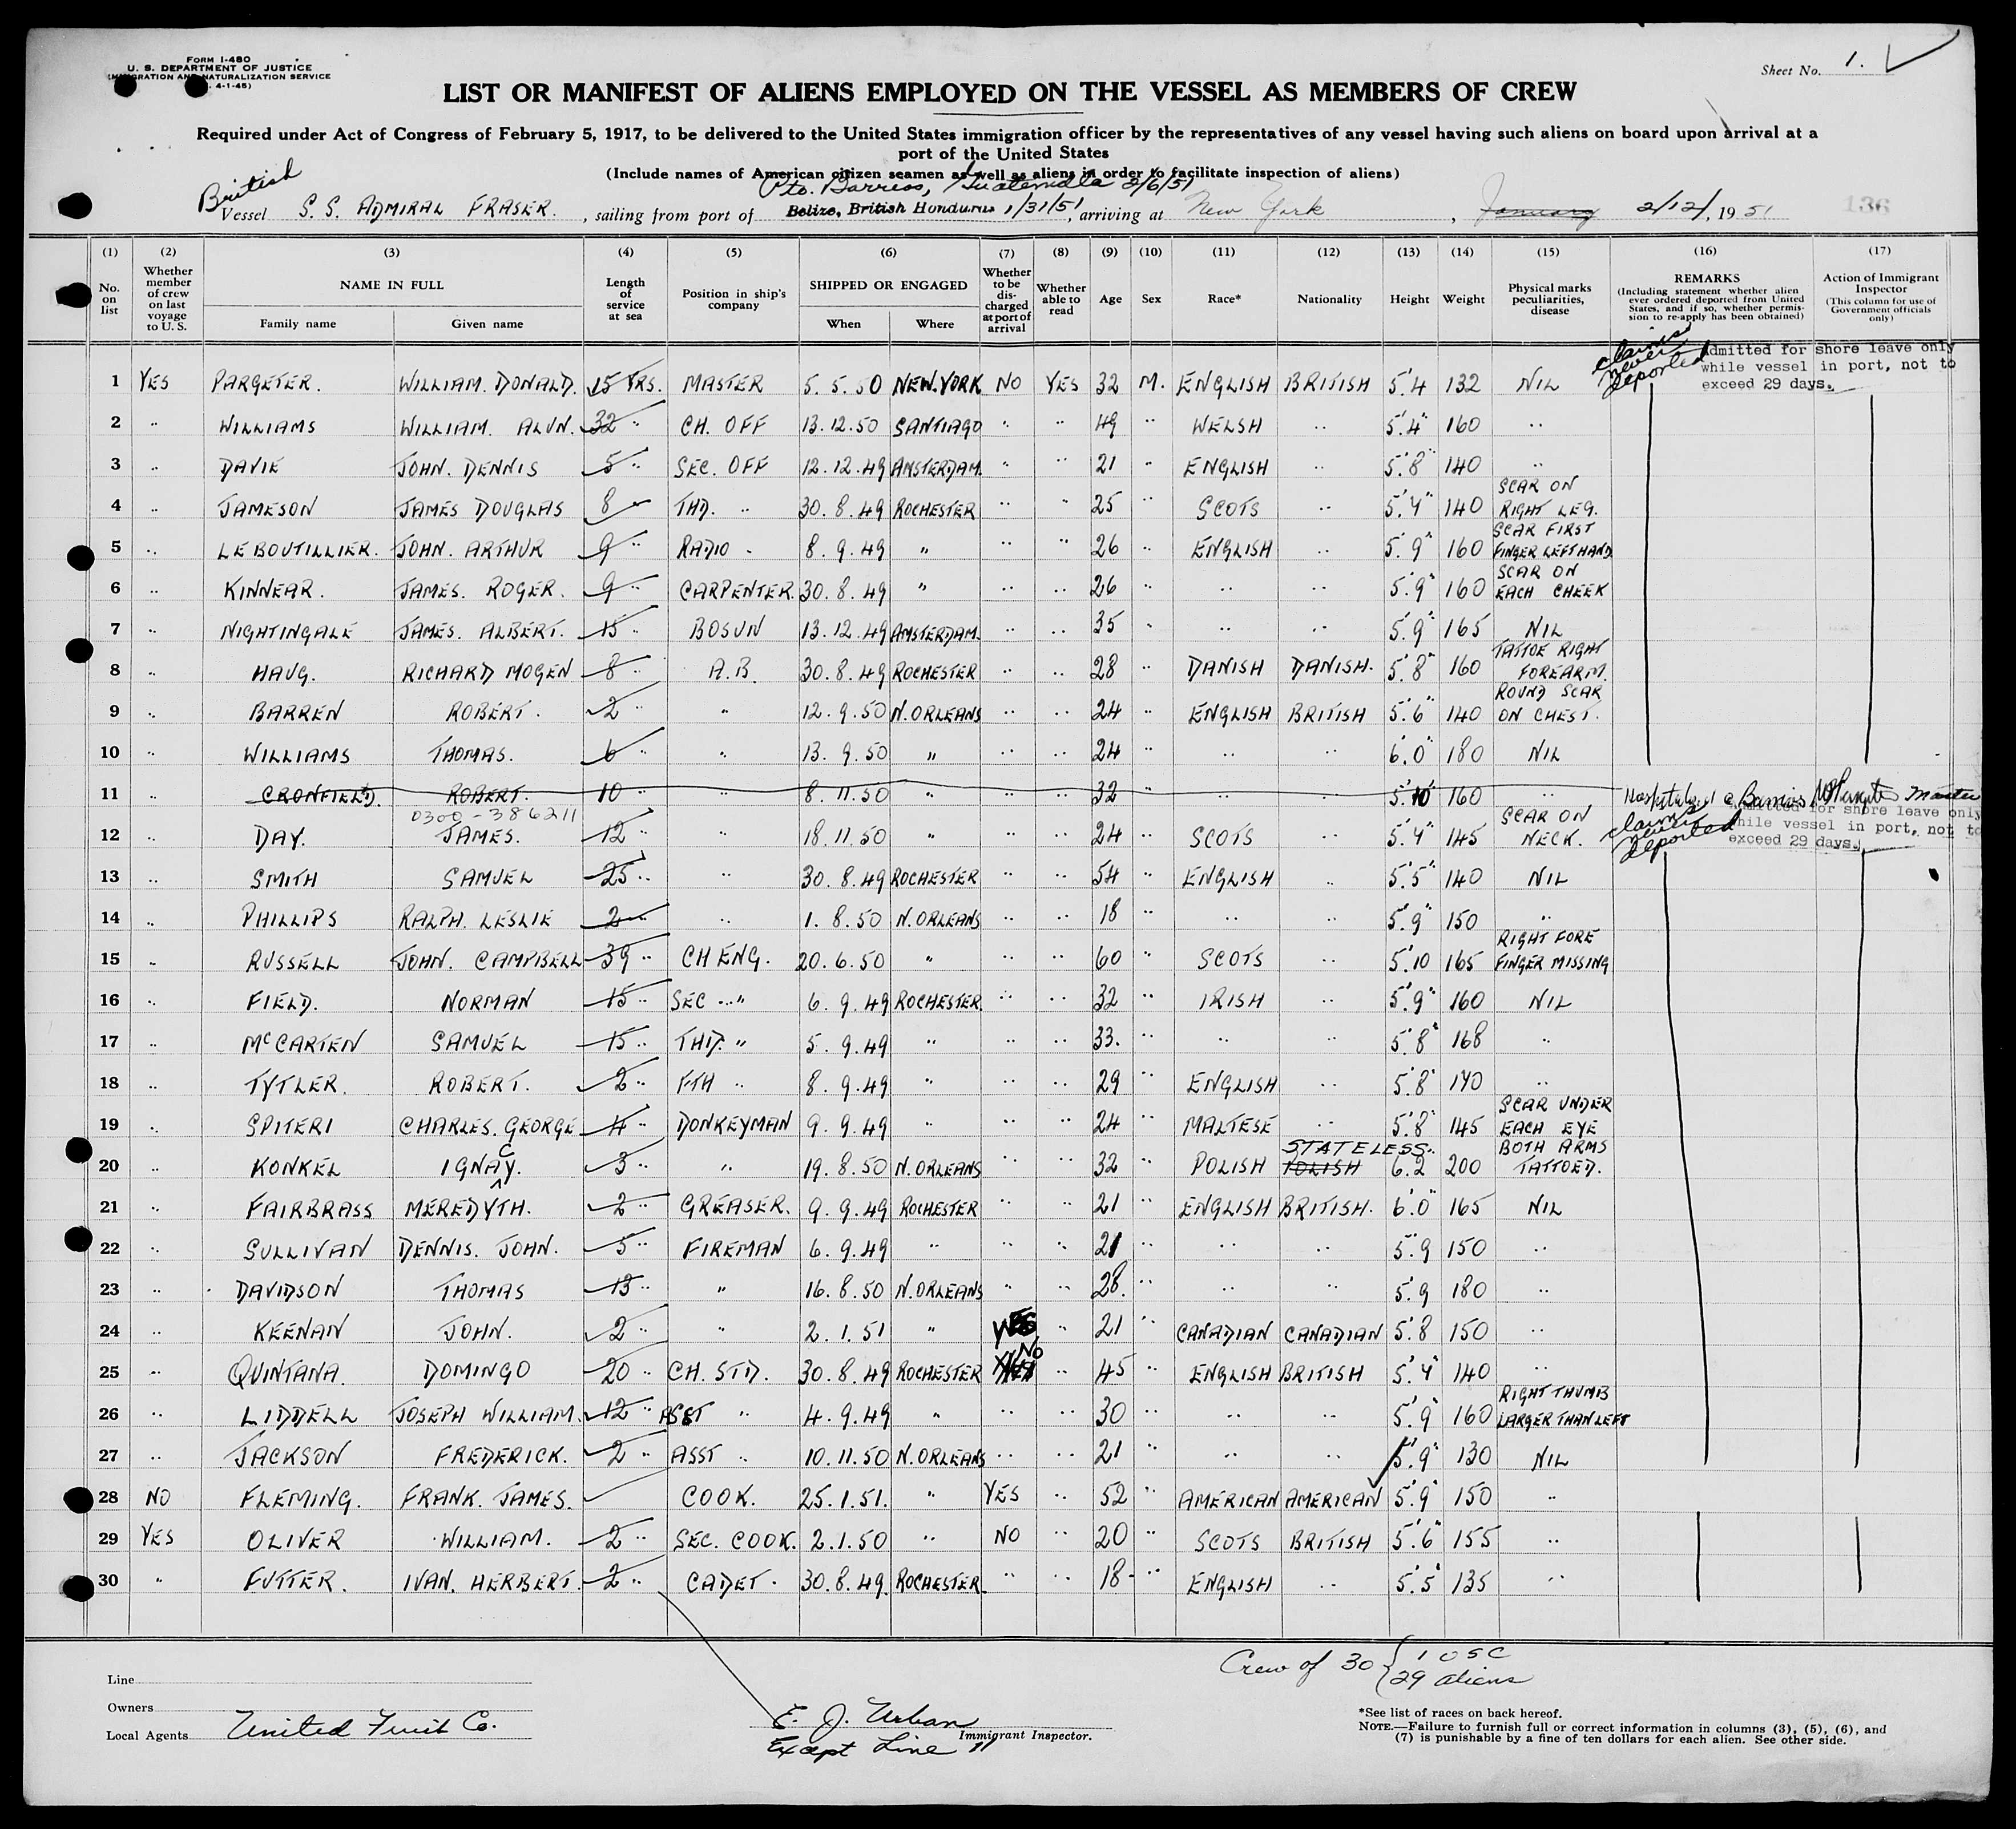 FORM I-480
U. S. DEPARTMENT OF JUSTICE
IMMIGRATION AND NATURALIZATION SERVICE
4-1-45)
Sheet No. 1.
LIST OR MANIFEST OF ALIENS EMPLOYED ON THE VESSEL AS MEMBERS OF CREW
Required under Act of Congress of February 5, 1917, to be delivered to the United States immigration officer by the representatives of any vessel having such aliens on board upon arrival at a
port of the United States
(Include names of American citizen seamen as well as aliens in order to facilitate inspection of aliens)
British Pto. Barrios, Guatemala 2/6/51
Vessel S. S. ADMIRAL FRASER. , sailing from port of Belize, British Honduras 1/31/51, arriving at New York , January 2/12/, 1951 136
(1) (2) (3) (4) (5) (6) (7) (8) (9) (10) (11) (12) (13) (14) (15) (16) (17)
No. on list
Whether member of crew on last voyage to U. S.
NAME IN FULL
Family name Given name
Length of service at sea
Position in ship's company
SHIPPED OR ENGAGED
When Where
Whether to be discharged at port of arrival
Whether able to read
Age
Sex
Race*
Nationality
Height
Weight
Physical marks peculiarities, disease
REMARKS
(Including statement whether alien ever ordered deported from United States, and if so, whether permission to re-apply has been obtained)
Action of Immigrant Inspector
(This column for use of Government officials only)
claims never deported
Admitted for shore leave only
while vessel in port, not to
exceed 29 days.
1 YES PARGETER. WILLIAM. DONALD. 15 YRS. MASTER 5. 5. 50 NEW.YORK NO YES 32 M. ENGLISH BRITISH 5'.4 132 NIL
2 " WILLIAMS WILLIAM. ALUN. 32 " CH. OFF 13.12.50 SANTIAGO " " 49 " WELSH " 5'.4" 160 "
3 " DAVIE JOHN. DENNIS 5 " SEC. OFF 12.12.49 AMSTERDAM. " " 21 " ENGLISH " 5'.8" 140 "
4 " JAMESON JAMES DOUGLAS 8 THD. " 30.8.49 ROCHESTER " " 25 " SCOTS " 5'.4" 140 SCAR ON RIGHT LEG.
5 " LE BOUTILLIER. JOHN. ARTHUR 9 " RADIO " 8.9.49 " " " 26 " ENGLISH " 5'.9" 160 SCAR FIRST FINGER LEFT HAND
6 " KINNEAR. JAMES. ROGER. 9 " CARPENTER. 30.8.49 " " " 26 " " " 5'.9" 160 SCAR ON EACH CHEEK
7 " NIGHTINGALE JAMES. ALBERT. 15 " BOSUN 13.12.49 AMSTERDAM. " " 35 " " " 5'.9" 165 NIL
8 " HAUG. RICHARD MOGEN 8 " A.B. 30.8.49 ROCHESTER " " 28 " DANISH DANISH. 5'.8" 160 TATTOE RIGHT FOREARM.
9 " BARREN ROBERT. 2 " " 12.9.50 N.ORLEANS " " 24 " ENGLISH BRITISH 5'.6" 140 ROUND SCAR ON CHEST.
10 " WILLIAMS THOMAS. 6 " " 13.9.50 " " " 24 " " " 6'.0" 180 NIL
11 " CRONFIELD. ROBERT. 10 " 8.11.50 " " " 32 " " " 5'.10" 160 " Hospitalized @ Barrios, Master
0300-386211
claims never deported
Admitted for shore leave only
while vessel in port, not to
exceed 29 days.
12 " DAY. JAMES. 12 " " 18.11.50 " " " 24 " SCOTS " 5'.4" 145 SCAR ON NECK.
13 " SMITH SAMUEL 25 " " 30.8.49 ROCHESTER " " 54 " ENGLISH " 5'.5" 140 NIL
14 " PHILLIPS RALPH. LESLIE 2 " " 1.8.50 N.ORLEANS " " 18 " " " 5'.9" 150 "
15 " RUSSELL JOHN. CAMPBELL 39 " CH ENG. 20.6.50 " " " 60 " SCOTS " 5'.10 165 RIGHT FORE FINGER MISSING
16 " FIELD. NORMAN 15 " SEC " 6.9.49 ROCHESTER. " " 32 " IRISH " 5'.9" 160 NIL
17 " McCARTEN SAMUEL 15 " THD. " 5.9.49 " " " 33. " " " 5'.8" 168 "
18 " TYTLER. ROBERT. 2 " FTH " 8.9.49 " " " 29 " ENGLISH " 5'.8" 140 "
19 " SPITERI CHARLES. GEORGE 4 " DONKEYMAN 9.9.49 " " " 24 " MALTESE " 5'.8" 145 SCAR UNDER EACH EYE
20 " KONKEL IGNACY. 3 " " 19.8.50 N.ORLEANS " " 32 " POLISH POLISH STATELESS. 6'.2 200 BOTH ARMS TATTOED.
21 " FAIRBRASS MEREDYTH. 2 " GREASER. 9.9.49 ROCHESTER " " 21 " ENGLISH BRITISH. 6'.0" 165 NIL
22 " SULLIVAN DENNIS. JOHN. 5 " FIREMAN 6.9.49 " " " 21 " " " 5'.9 150 "
23 " DAVIDSON THOMAS 13 " " 16.8.50 N.ORLEANS " " 28. " " " 5'.9 180 "
24 " KEENAN JOHN. 2 " " 2.1.51 " YES " 21 " CANADIAN CANADIAN 5'.8 150 "
25 " QUINTANA. DOMINGO 20 " CH. STD. 30.8.49 ROCHESTER NO " 45 " ENGLISH BRITISH 5'.4" 140 "
26 " LIDDELL JOSEPH WILLIAM. 12 " ASST " 4.9.49 " " 30 " " " 5'.9" 160 RIGHT THUMB LARGER THAN LEFT
27 " JACKSON FREDERICK. 2 " ASST " 10.11.50 N.ORLEANS " " 21 " " " 5'.9" 130 NIL
28 NO FLEMING. FRANK. JAMES. COOK. 25.1.51. " YES " 52 " AMERICAN AMERICAN 5'.9" 150 "
29 YES OLIVER WILLIAM. 2 " SEC. COOK. 2.1.50 " NO " 20 " SCOTS BRITISH 5'.6" 155 "
30 " FUTTER. IVAN. HERBERT. 2 " CADET. 30.8.49. ROCHESTER. " " 18 " ENGLISH " 5'.5" 135 "
Crew of 30 { 1 USC
29 aliens
Line
Owners
Local Agents United Fruit Co.
E. J. Urban
Immigrant Inspector.
Except Line 11
*See list of races on back hereof.
NOTE.—Failure to furnish full or correct information in columns (3), (5), (6), and
(7) is punishable by a fine of ten dollars for each alien. See other side.